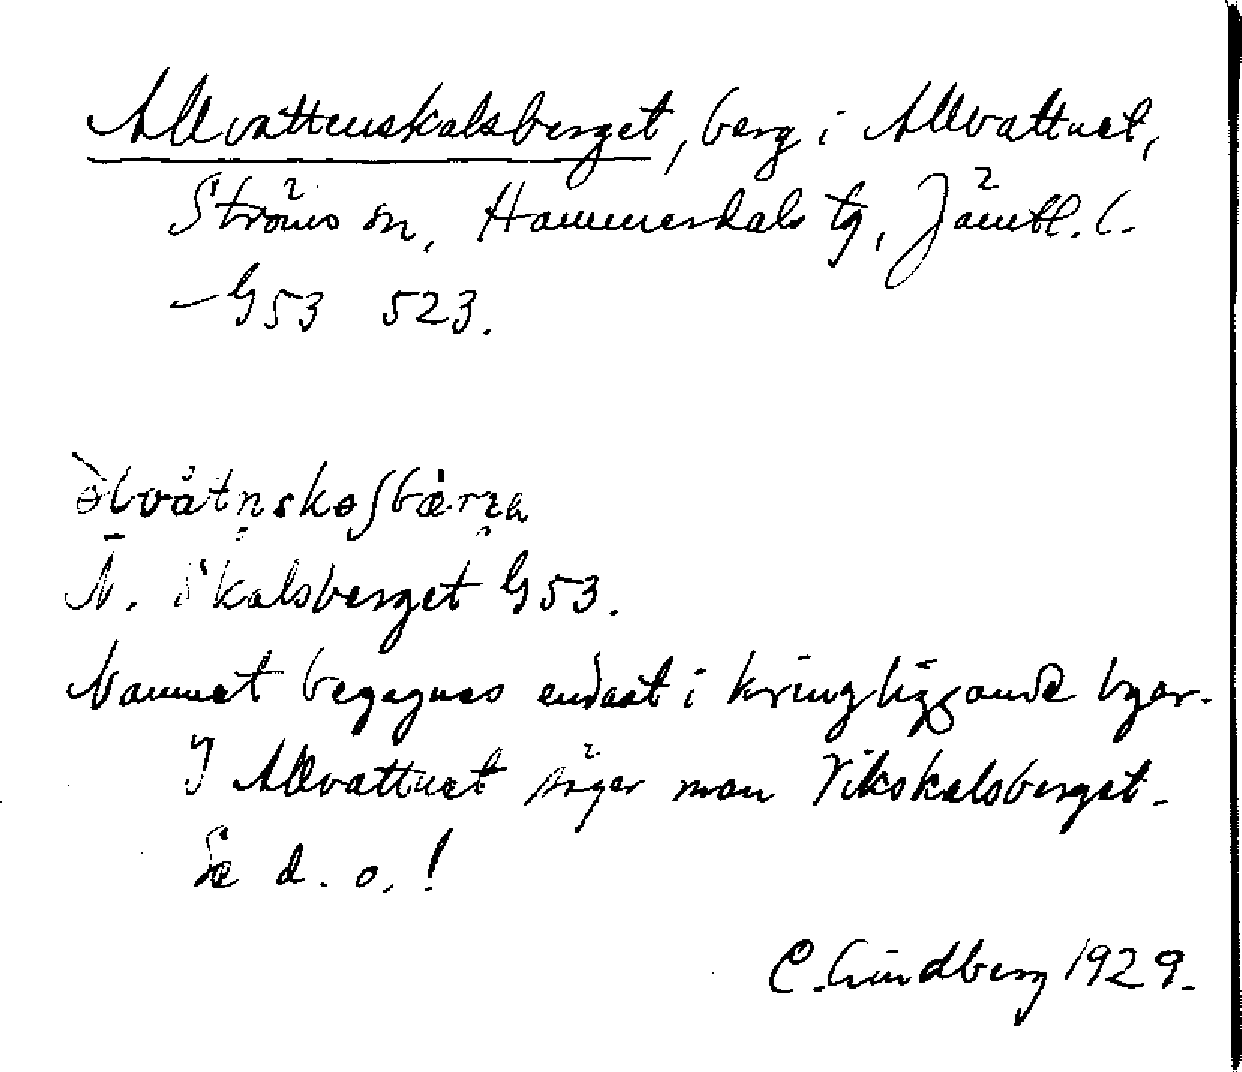 Allvattenskalsberget, berg i Allvattnet,
Ströms sn, Hammerdals tg, Jämtl. l.
— G53 523.
N. Skalsberget G53.
Namnet begagnas endast i kringliggande byar.
I Allvattnet säger man Vikskalsberget.
Se d. o.!
C. Lindberg 1929.